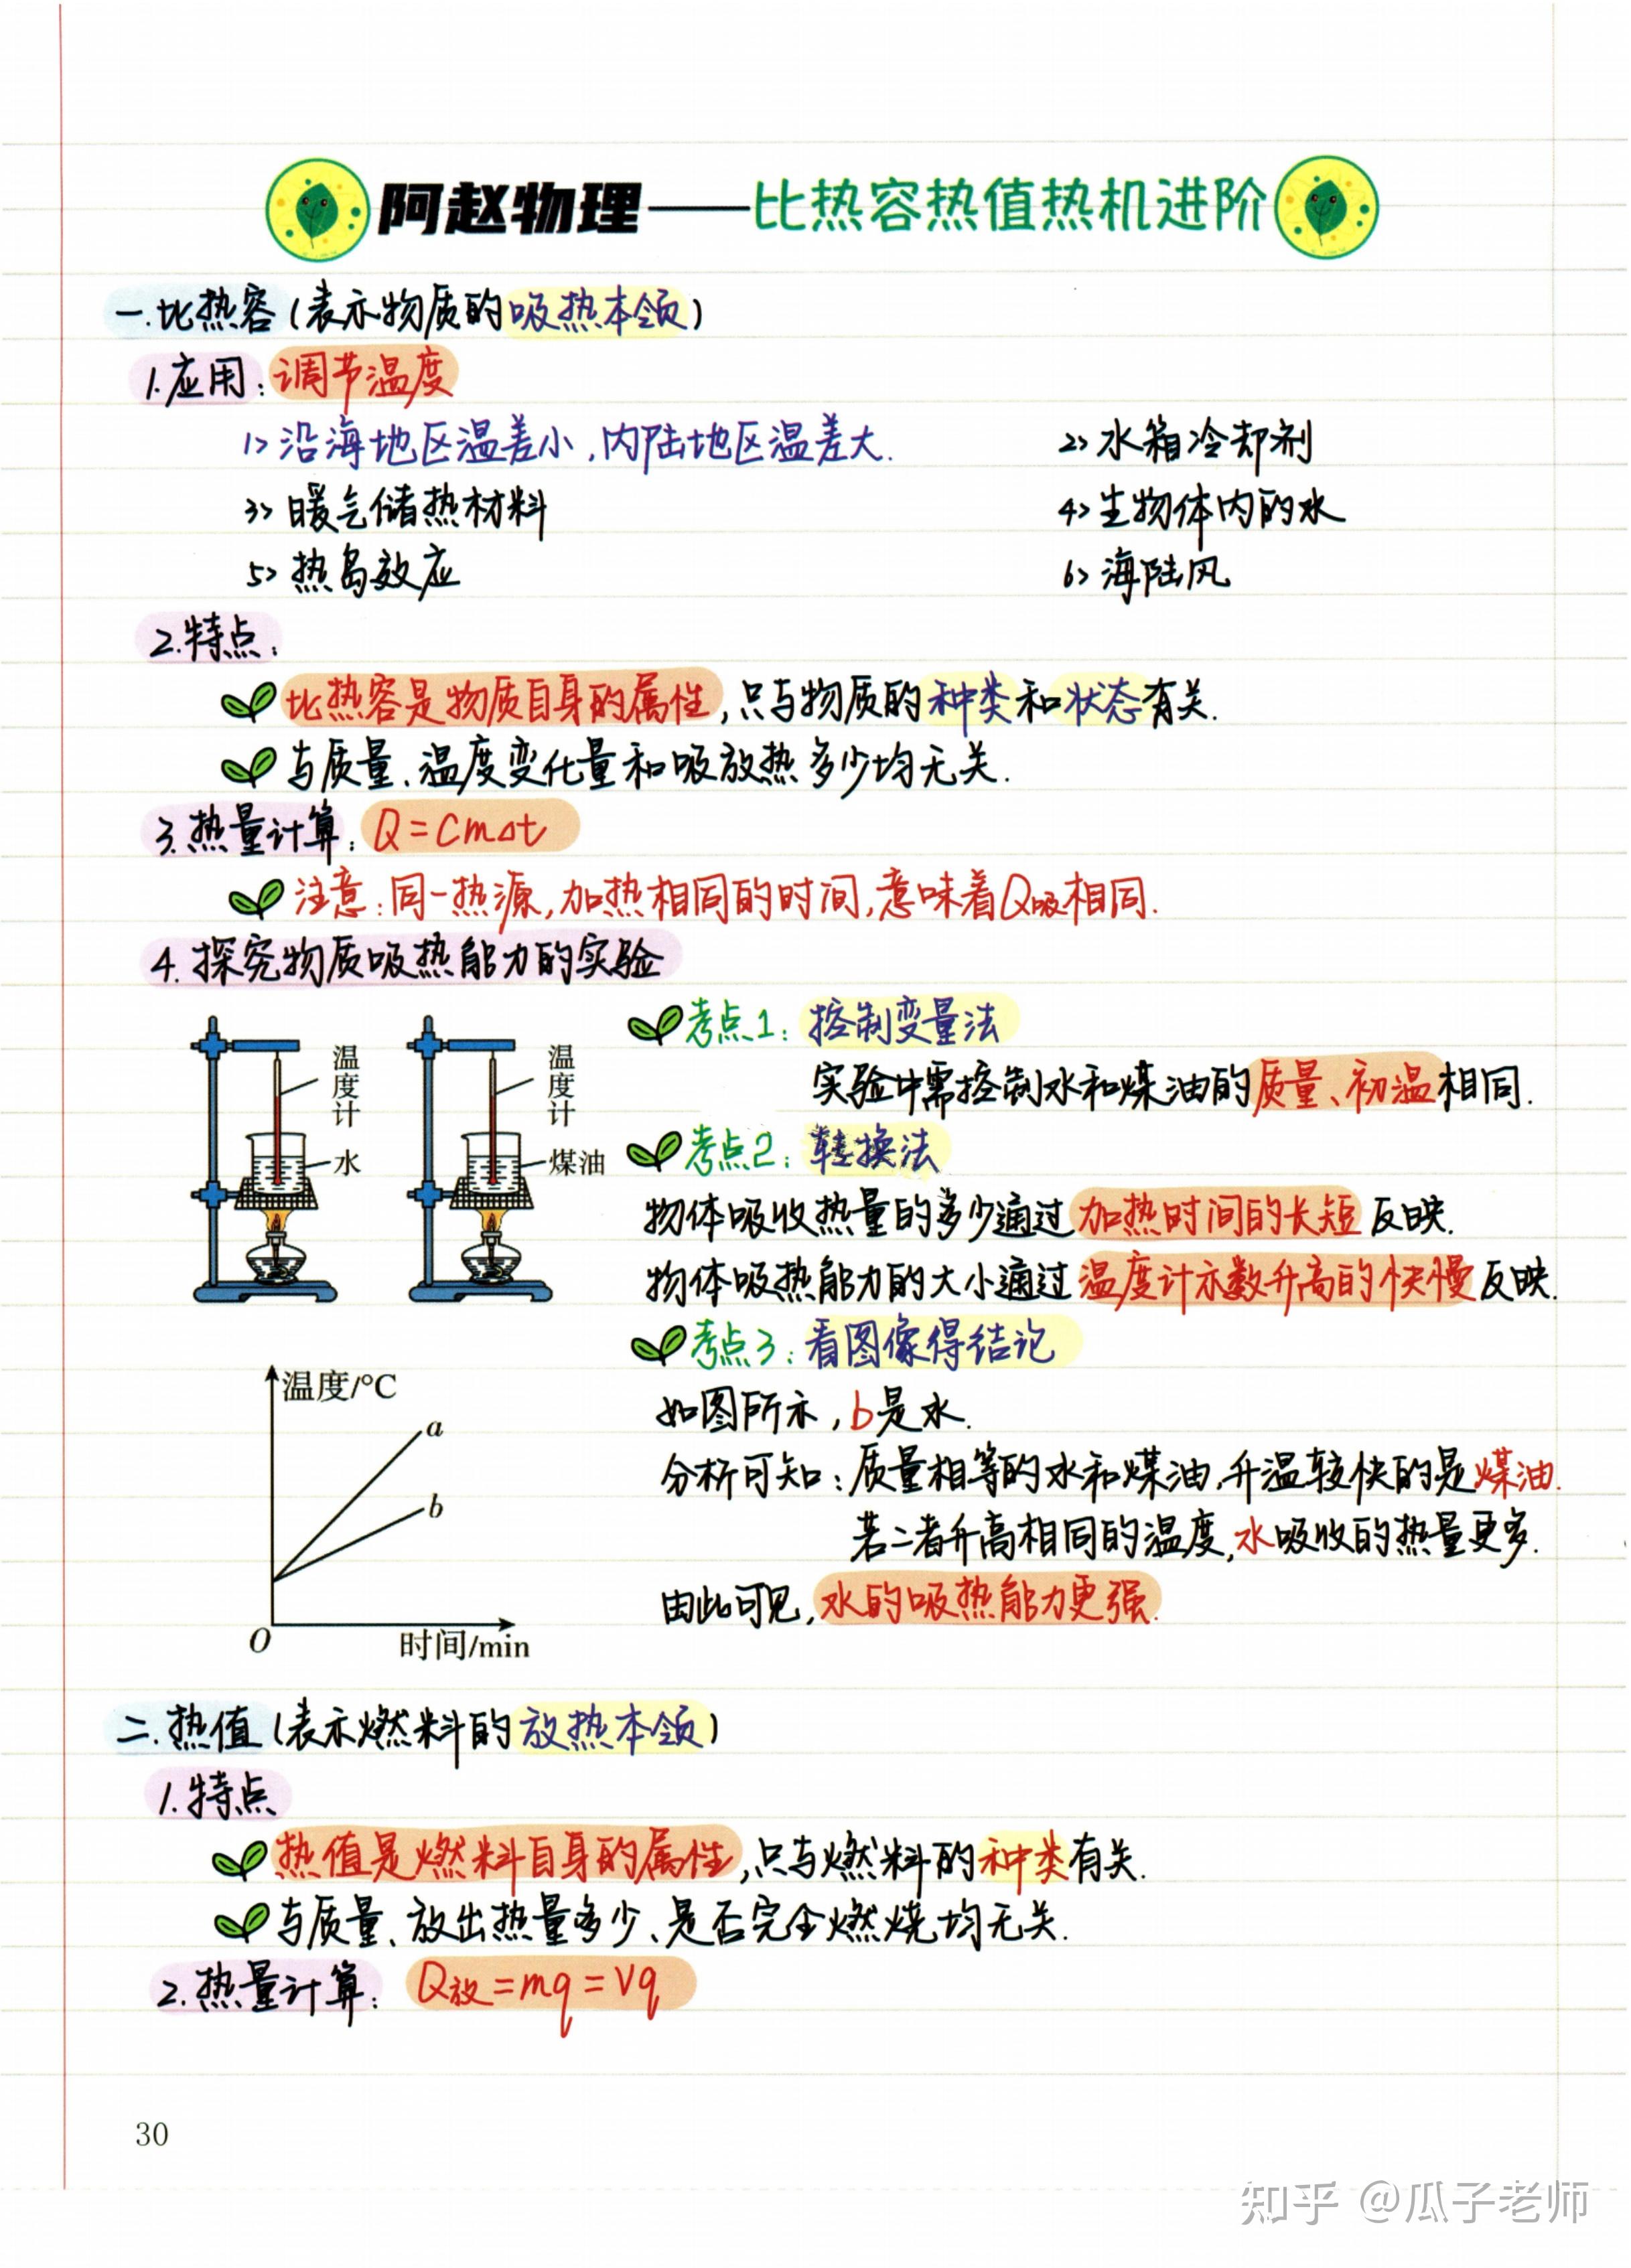 阿赵物理——比热容热值热机进阶
一.比热容(表示物质的吸热本领)
1.应用:调节温度
1>沿海地区温差小,内陆地区温差大.
2>水箱冷却剂
3>暖气储热材料
4>生物体内的水
5>热岛效应
6>海陆风
2.特点:
比热容是物质自身的属性,只与物质的种类和状态有关.
与质量、温度变化量和吸放热多少均无关.
3.热量计算:Q=Cm△t
注意:同一热源,加热相同的时间,意味着Q吸相同.
4.探究物质吸热能力的实验
温度计
水
温度计
煤油
考点1:控制变量法
实验中需控制水和煤油的质量、初温相同.
考点2:转换法
物体吸收热量的多少通过加热时间的长短反映.
物体吸热能力的大小通过温度计示数升高的快慢反映.
考点3:看图像得结论
如图所示,b是水.
分析可知:质量相等的水和煤油,升温较快的是煤油.
若二者升高相同的温度,水吸收的热量更多.
由此可见,水的吸热能力更强.
温度/°C
a
b
O
时间/min
二.热值(表示燃料的放热本领)
1.特点
热值是燃料自身的属性,只与燃料的种类有关.
与质量、放出热量多少、是否完全燃烧均无关.
2.热量计算:Q放=mq=Vq
30
知乎 @瓜子老师